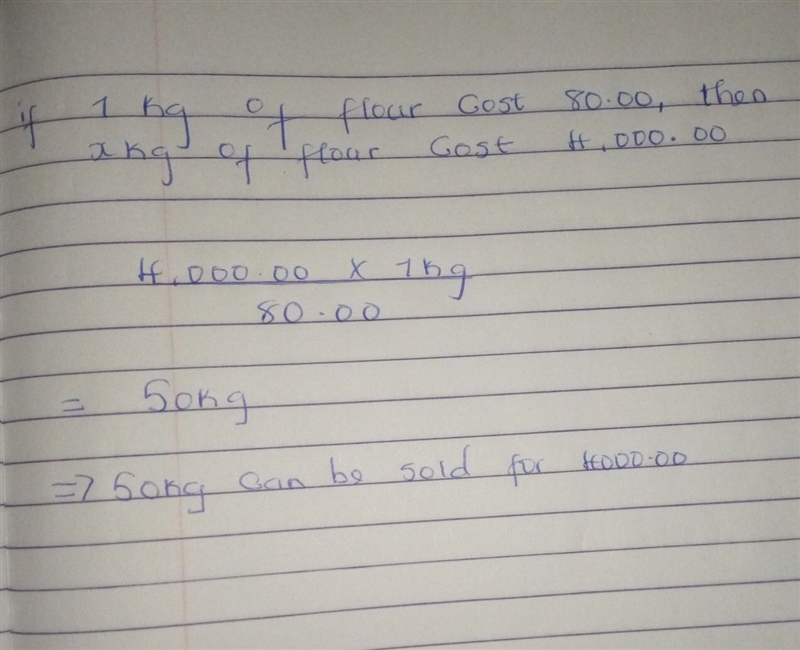 if 1 Kg of flour Cost 80.00, then
xKg of flour Cost 4,000.00
4,000.00 x 1Kg
80.00
= 50Kg
=> 50Kg Can be sold for 4000.00